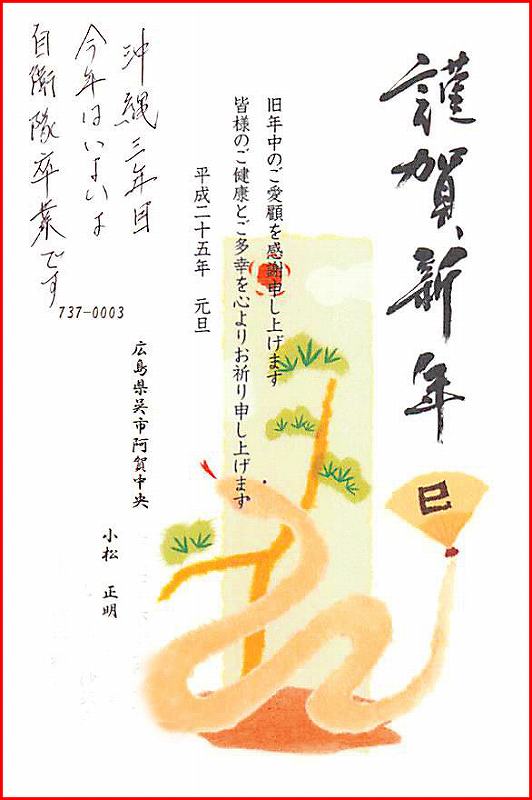 謹賀新年
旧年中のご愛顧を感謝申し上げます
皆様のご健康とご多幸を心よりお祈り申し上げます
平成二十五年 元旦
巳
沖縄三年目
今年はいよいよ
自衛隊卒業です
737-0003
広島県呉市阿賀中央
小松 正明